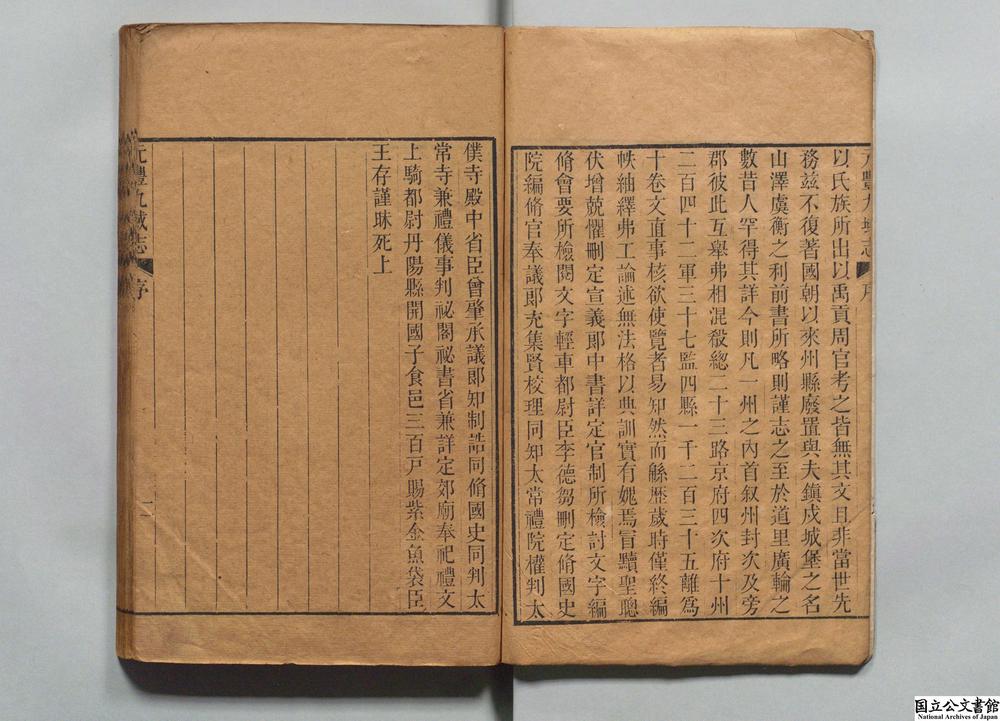 元豐九域志 序
以氏族所出以禹貢周官考之皆無其文且非當世先
務茲不復著國朝以來州縣廢置與夫鎮戍城堡之名
山澤虞衡之利前書所略則謹志之至於道里廣輪之
數昔人罕得其詳今則凡一州之內首叙州封次及旁
郡彼此互舉弗相混殽總二十三路京府四次府十州
二百四十二軍三十七監四縣一千二百三十五離爲
十卷文直事核欲使覽者易知然而緜歷歲時僅終編
帙紬繹弗工論述無法格以典訓實有媿焉冒黷聖聰
伏增兢懼刪定宣義郞中書詳定官制所檢討文字編
脩會要所檢閱文字輕車都尉臣李德芻刪定脩國史
院編脩官奉議郞充集賢校理同知太常禮院權判太
僕寺殿中省臣曾肇承議郞知制誥同脩國史同判太
常寺兼禮儀事判祕閣祕書省兼詳定郊廟奉祀禮文
上騎都尉丹陽縣開國子食邑三百戸賜紫金魚袋臣
王存謹昧死上
元豐九域志 序 二
国立公文書館
National Archives of Japan